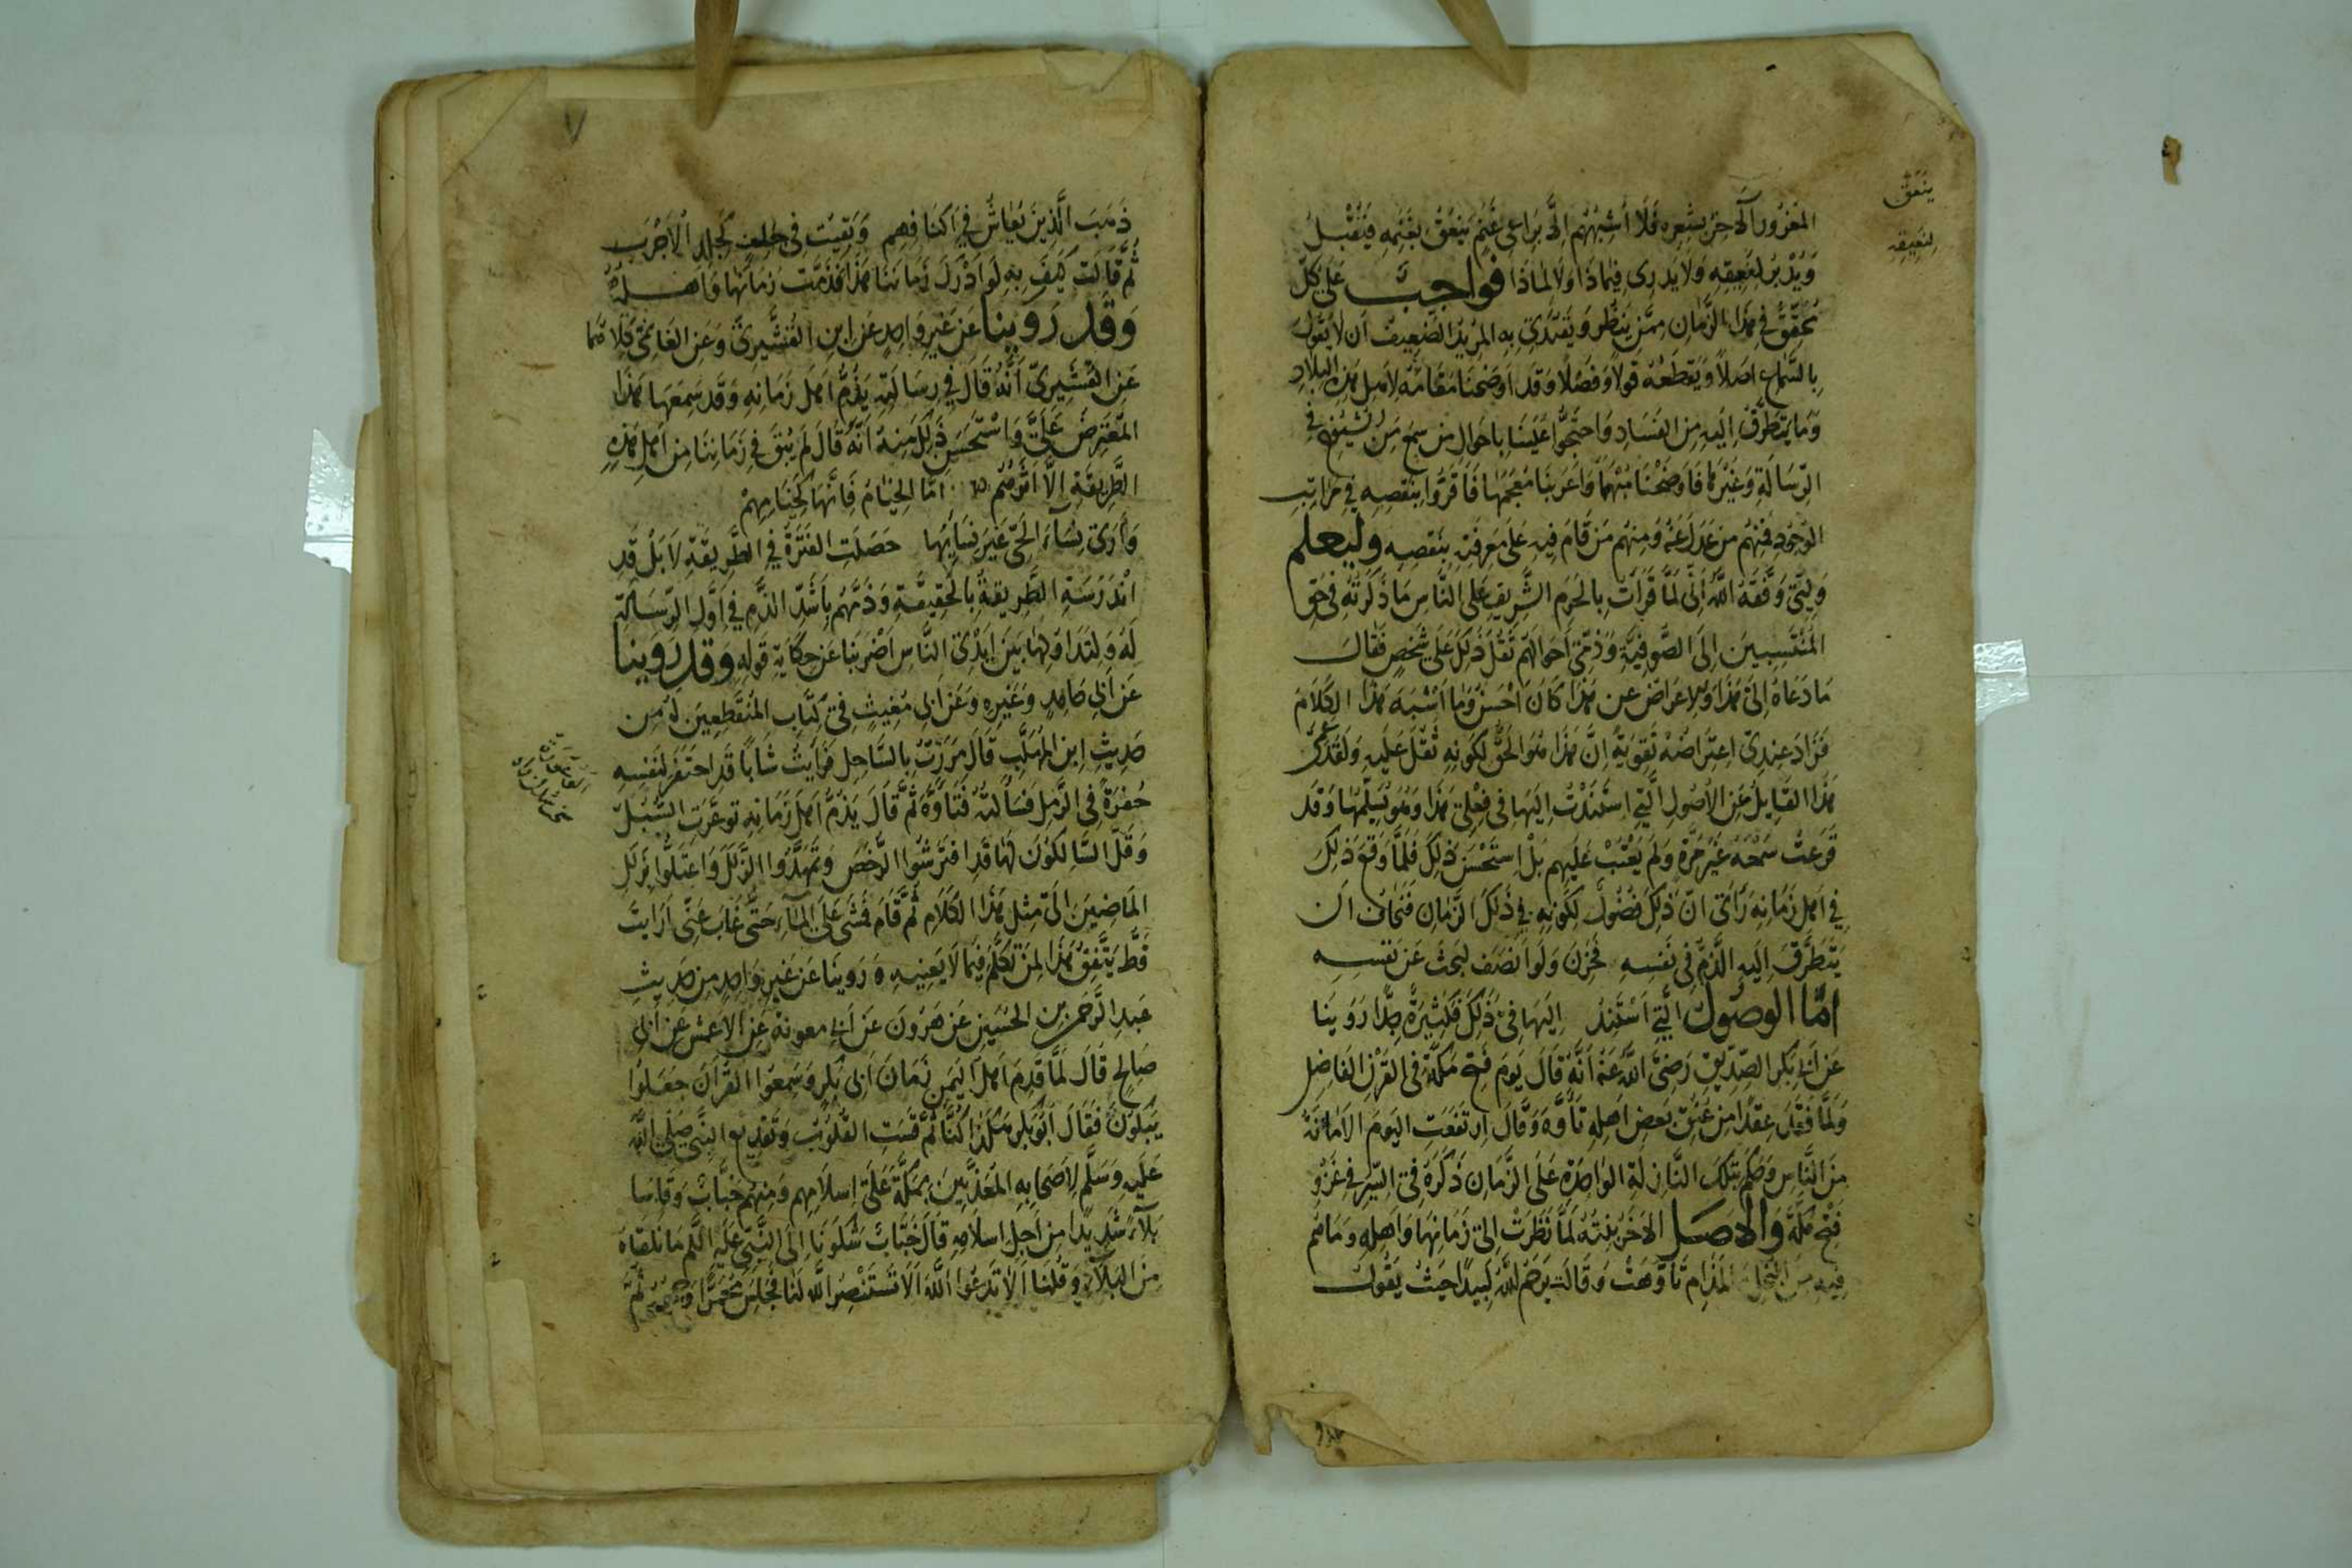 المغرور الآخر بشعره فلا أشبههم إلا براعي غنم ينعق بغنمه فيقبل
ويدبر لنعيقه ولا يدري فيما ذا ولا لماذا فواجب على كل
محقق في هذا الزمان ممن ينظر ويقتدى به المريد الضعيف أن لا يقول
بالسماع أصلا ويقطعه قولا وفصلا وقد أوضحنا مقامه لأهل هذه البلاد
وما يتطرق إليه من الفساد واحتجوا علينا بأحوال من سمع من الشيوخ في
الرسالة وغيرها فأوضحنا مبهمها وأعربنا معجمها فأقروا بنقصه في مراتب
الوجود فمنهم من عدل عنه ومنهم من قام فيه على معرفة بنقصه وليعلم
وليي وفقه الله أني لما قرأت بالحرم الشريف على الناس ما ذكرته في حق
المنتسبين إلى الصوفية وذمي أحوالهم ثقل ذلك على شخص فقال
ما دعاه إلى هذا والإعراض عن هذا كان أحسن وما أشبه هذا الكلام
فزاد عندي اعتراضه تقوية إن هذا هو الحق لكونه ثقل عليه ولقد عمي
هذا القايل عن الأصول التي استندت إليها في فعلي هذا وهو يسلمها وقد
قرعت سمعه غير مرة ولم يعتب عليهم بل استحسن ذلك فلما وقع ذلك
في أهل زمانه رأى أن ذلك فضول لكونه في ذلك الزمان فخاف أن
يتطرق إليه الذم في نفسه فحزن ولو أنصف لبحث عن نفسه
أما الوصول التي أستند إليها في ذلك فكثيرة جدا روينا
عن أبي بكر الصديق رضي الله عنه أنه قال يوم فتح مكة في القرن الفاضل
ولما فقد عقدا من عنق بعض أهله تأوه وقال ارتفعت اليوم الأمانة
من الناس وحكم بتلك النازلة الواحدة على الزمان ذكره في السير في غزو
فتح مكة والأصل الآخر بنته لما نظرت إلى زمانها وأهله وما هم
فيه من المذام تأوهت وقالت يرحم الله لبيدا حيث يقول
ينعق
لنعيقه
ذهب الذين يعاش في أكنافهم وبقيت في خلف كجلد الأجرب
ثم قالت كيف به لو أدرك زماننا هذا فذمت زمانها وأهله
وقد روينا عن غير واحد عن ابن القشيري وعن الغانمي كلاهما
عن القشيري أنه قال في رسالته يذم أهل زمانه وقد سمعها هذا
المعترض علي واستحسن ذلك منه أنه قال لم يبق في زماننا من أهل هذه
الطريقة إلا أثرهم أما الخيام فإنها كخيامهم
وأرى نساء الحي غير نسائها حصلت الفترة في الطريقة لا بل قد
اندرست الطريقة بالحقيقة وذمهم بأشد الذم في أول الرسالة
له ولتداولها بين أيدي الناس أضربنا عن حكاية قوله وقد روينا
عن أبي حامد وغيره وعن ابن مغيث في كتاب المنقطعين له من
حديث ابن المهلب قال مررت بالساحل فرأيت شابا قد احتفر لنفسه
حفرة في الرمل فسألته فتأوه ثم قال يذم أهل زمانه توعرت السبل
وقل السالكون لها قد افترشوا الرخص وتمهدوا الزلل واعتلوا بزلل
الماضين إلى مثل هذا الكلام ثم قام فمشى على الماء حتى غاب عني أرأيت
قط يتفق هذا لمن تكلم فيما لا يعنيه وروينا عن غير واحد من حديث
عبد الرحمن بن الحسين عن هرون عن أبي معوية عن الأعمش عن أبي
صالح قال لما قدم أهل اليمن زمان أبي بكر وسمعوا القرآن جعلوا
يبكون فقال أبو بكر هكذا كنا ثم قست القلوب وتقريع النبي صلى الله
عليه وسلم لأصحابه المعذبين بمكة على إسلامهم ومنهم خباب وقاسا
بلاء شديدا من أجل إسلامه قال خباب شكونا إلى النبي عليه السلم ما نلقاه
من البلاء وقلنا ألا تدعوا الله ألا تستنصر الله لنا فجلس محمرا وجهه ثم